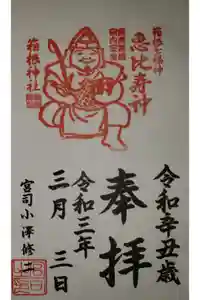 箱根七福神
恵比寿神
箱根神社
令和辛丑歳
奉拝
令和三年
三月 三日
宮司小澤修二